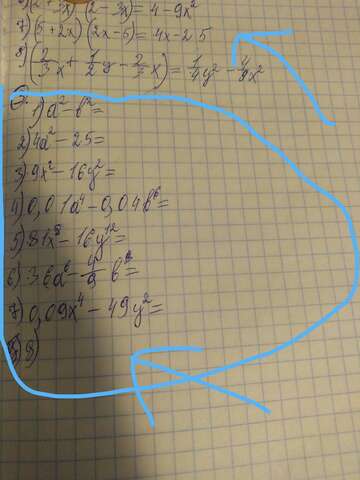 (2+3x)(2-3x)=4-9x²
7)(5+2x)(2x-5)=4x-25
8)(2/3x+1/2y-2/3x)=1/4y²-4/9x²
1)a²-b²=
2)4a²-25=
3)9x²-16y²=
4)0,01a⁴-0,04b⁶=
5)81x⁸-16y¹²=
6)36a⁶-4/9b⁸=
7)0,09x⁴-49y²=